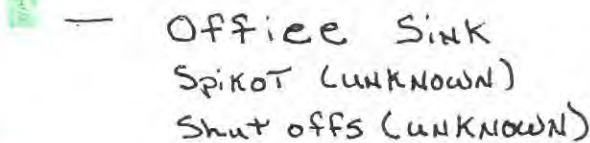 — Office Sink
Spikot (UNKNOWN)
Shut offs (UNKNOWN)